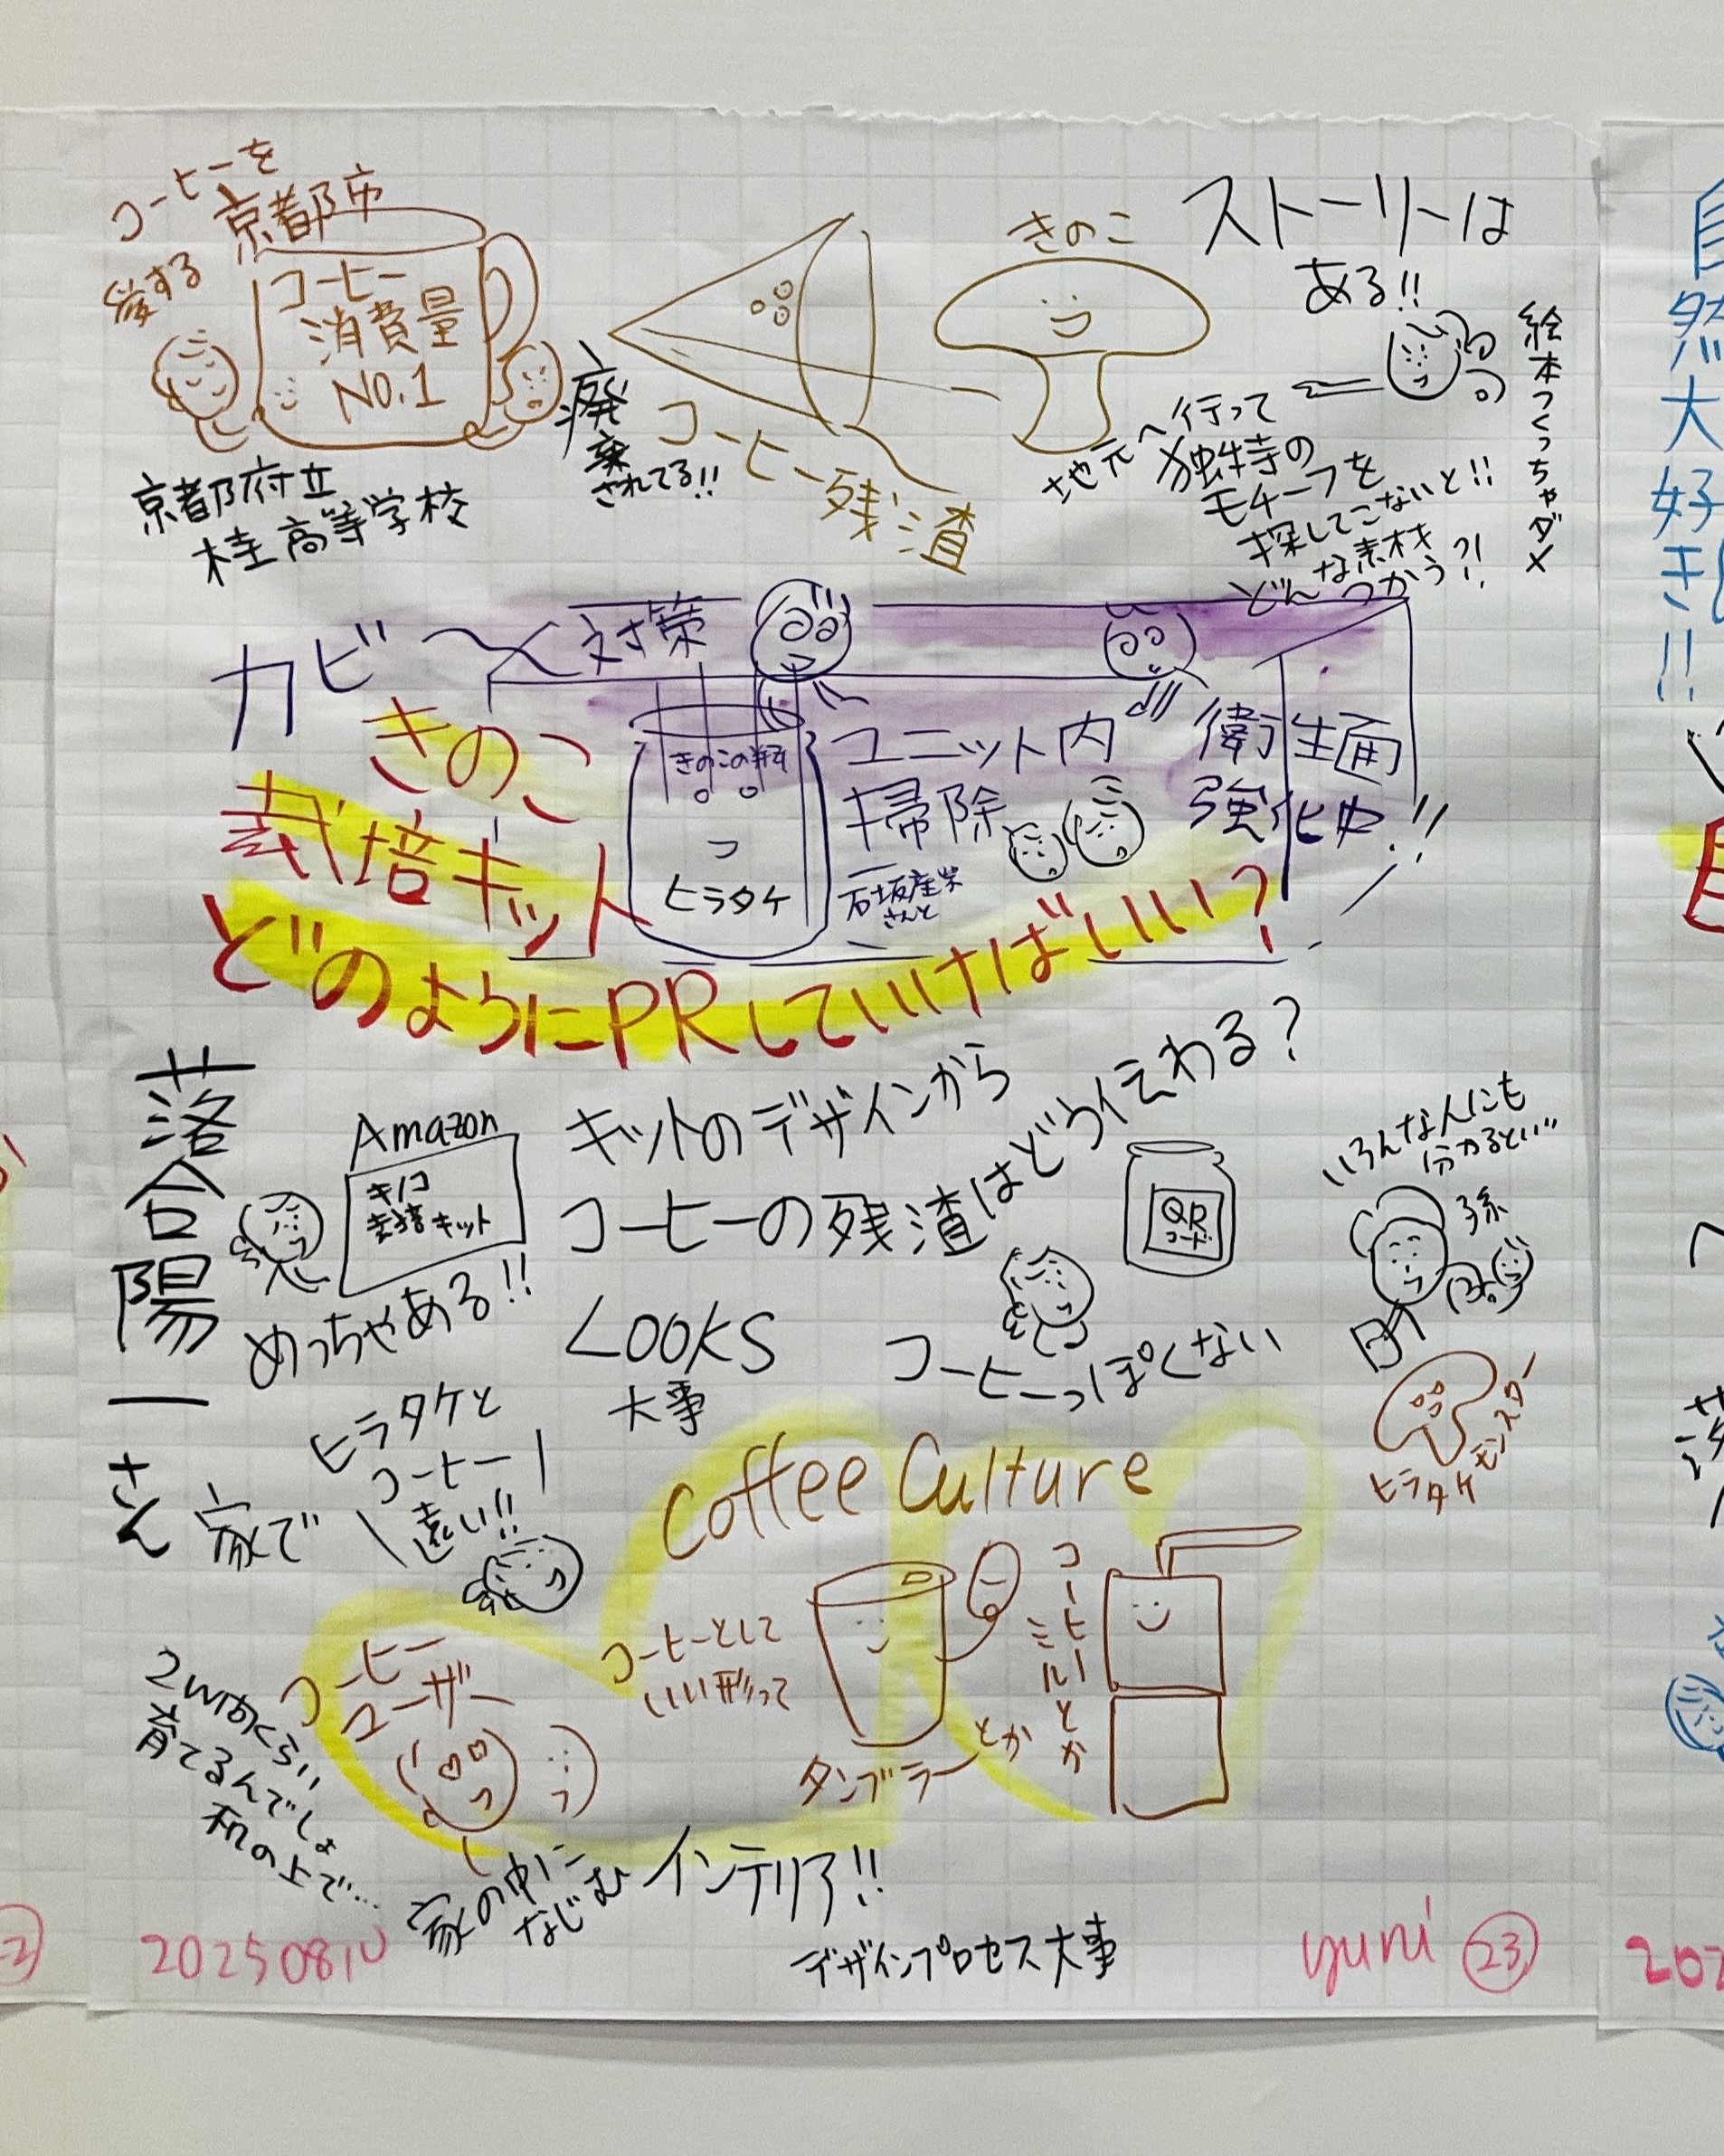 コーヒーを
愛する
京都市
コーヒー
消費量
NO.1
京都府立
桂高等学校
廃棄
されてる!!
コーヒー残渣
きのこ
ストーリーは
ある!!
絵本つくっちゃダメ
地元へ行って
独特の
モチーフを
探してこないと!!
どんな素材
つかう?!
カビ
対策
きのこ
栽培キット
どのようにPRしていけばいい?
きのこの瓶
ヒラタケ
ユニット内
掃除
石坂産業
さんと
衛生面
強化中!!
落合陽一さん
Amazon
キノコ
栽培キット
めっちゃある!!
キットのデザインから
コーヒーの残渣はどう伝わる?
QR
コード
いろんな人にも
分かるといい
孫
LOOKS
大事
コーヒーっぽくない
ヒラタケモンスター
ヒラタケと
コーヒー
遠い!!
家で
Coffee Culture
コーヒーとして
いい形って
タンブラーとか
コーヒー
ミルとか
コーヒー
ユーザー
2W間くらい
育てるんでしょ
机の上で…
家の中に
なじむ
インテリア!!
デザインプロセス大事
20250810
yuni
23
自然大好き!!